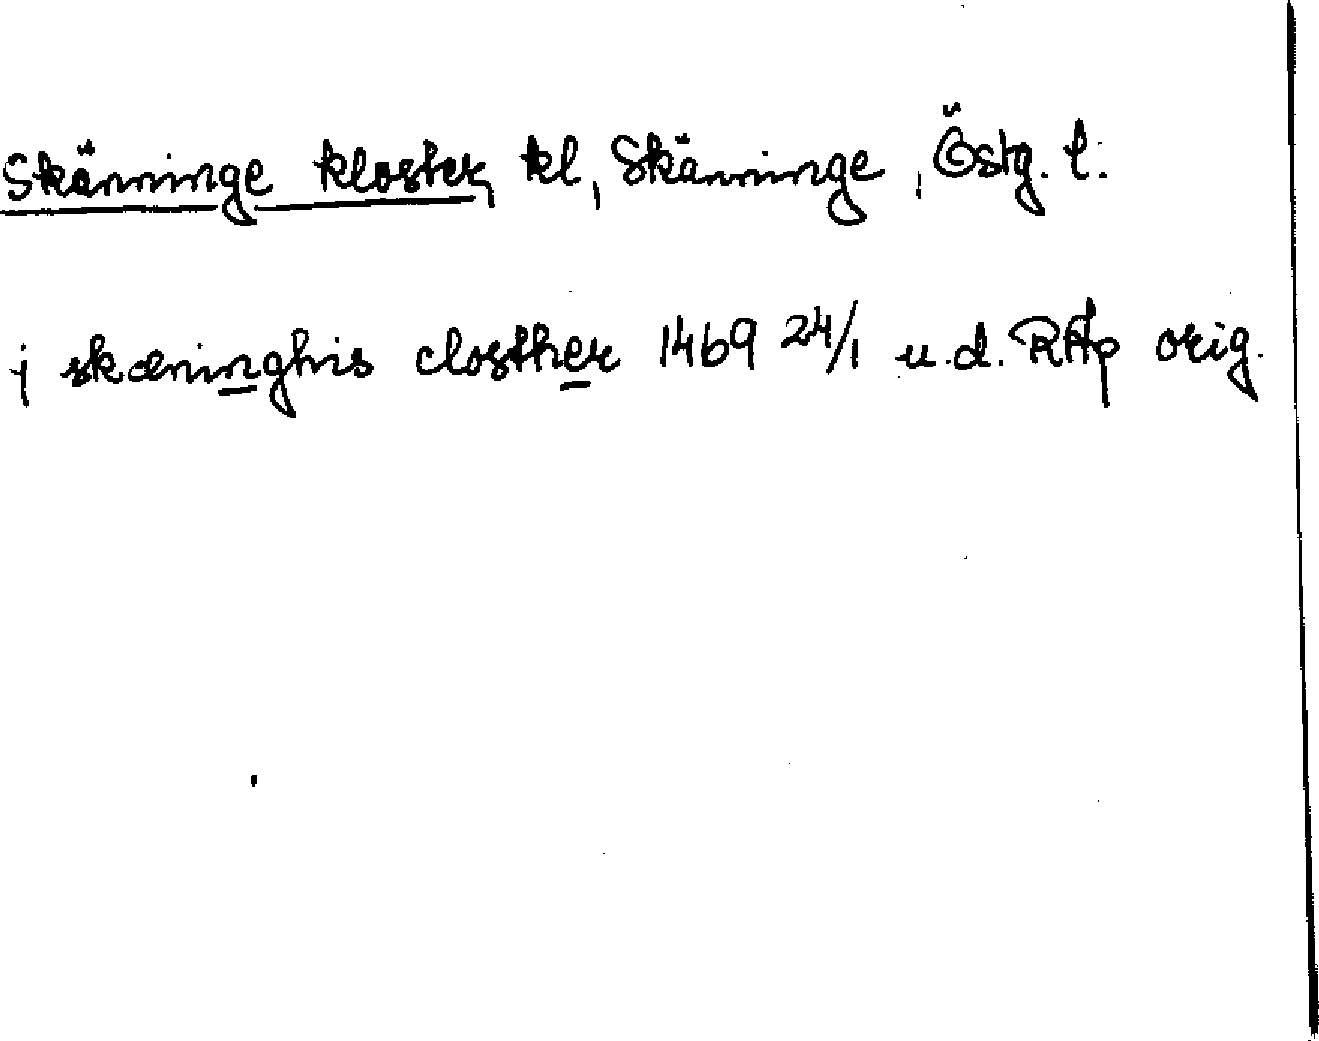 Skänninge kloster, kl, Skänninge, Östg. l.
j skæninghis closther 1469 24/1 u.d. RAp orig.